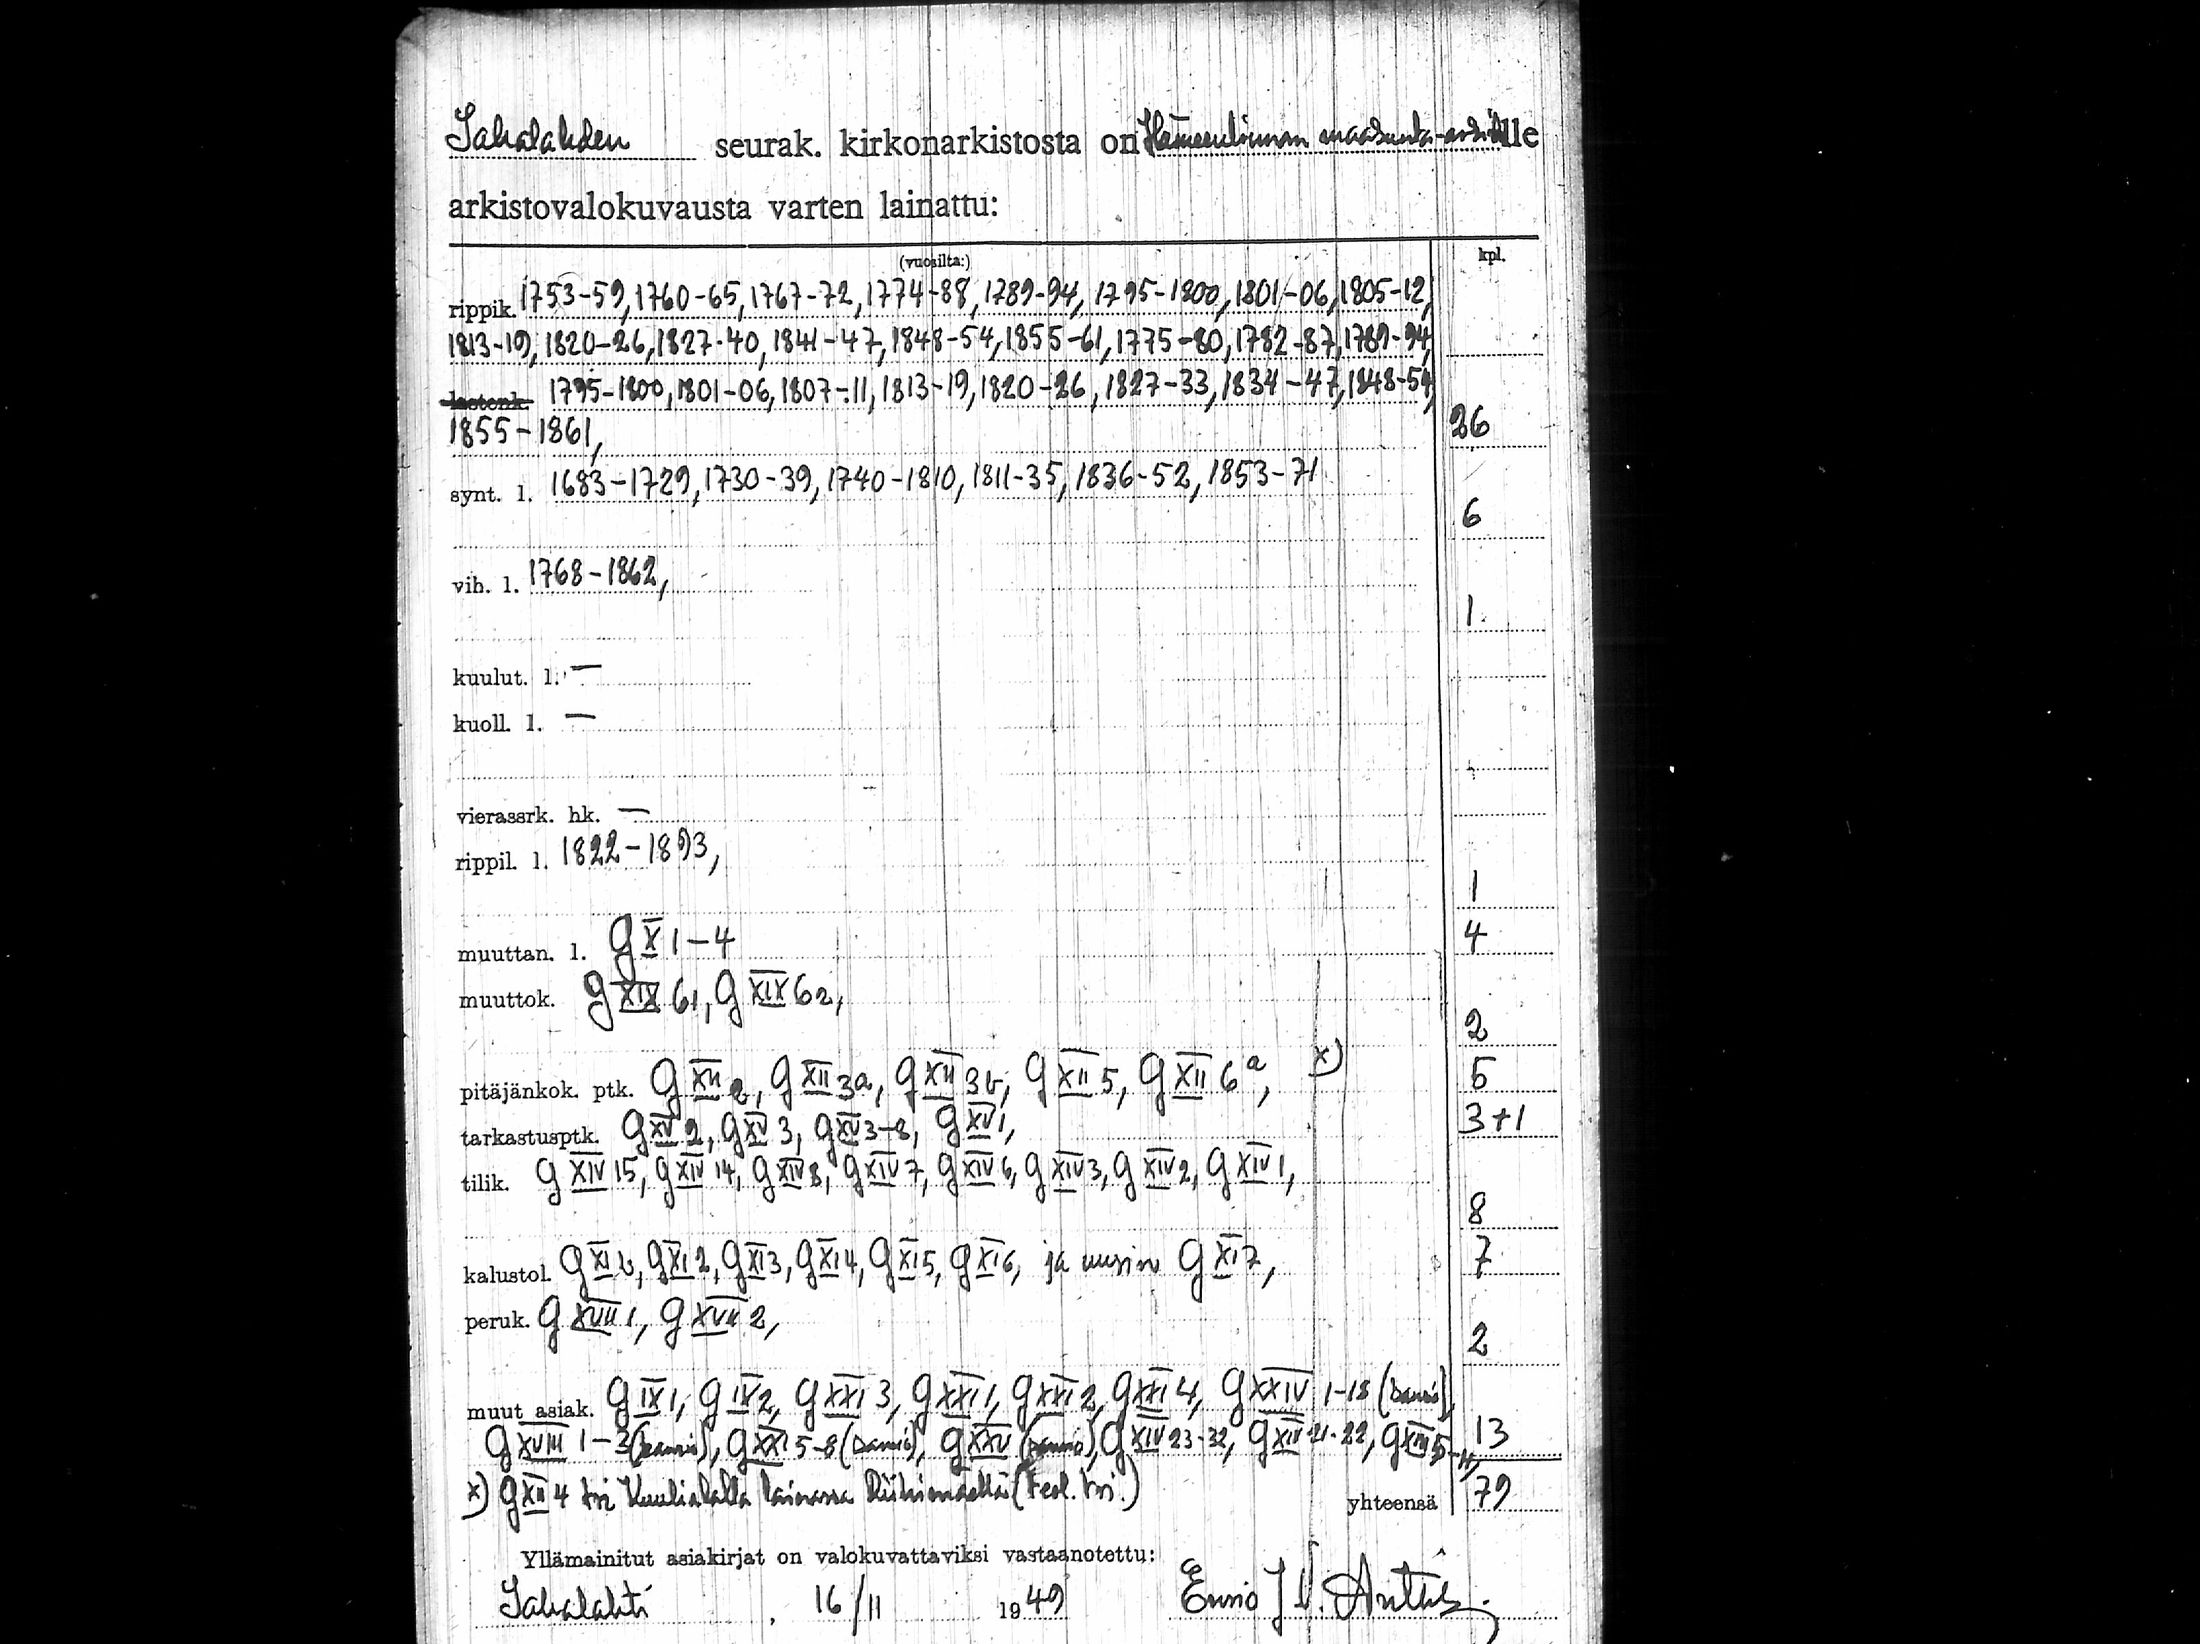 Sahalahden seurak. kirkonarkistosta on Hämeenlinnan maakunta-arkistolle
arkistovalokuvausta varten lainattu:
(vuosilta:) kpl.
rippik. 1753-59, 1760-65, 1767-72, 1774-88, 1789-94, 1795-1800, 1801-06, 1805-12,
1813-19, 1820-26, 1827-40, 1841-47, 1848-54, 1855-61, 1775-80, 1782-87, 1789-94,
lastenk. 1795-1800, 1801-06, 1807-11, 1813-19, 1820-26, 1827-33, 1834-47, 1848-54,
1855-1861, 26
synt. l. 1683-1729, 1730-39, 1740-1810, 1811-35, 1836-52, 1853-71
6
vih. l. 1768-1862,
1
kuulut. l. —
kuoll. l. —
vierassrk. hk. —
rippil. l. 1822-1893,
1
muuttan. l. G X 1-4 4
muuttok. G XIX 61, G XIX 62,
2
pitäjänkok. ptk. G XII 2, G XII 3a, G XII 3b, G XII 5, G XII 6a, x) 5
tarkastusptk. G XV 2, G XV 3, G XV 3-8, G XV 1, 3+1
tilik. G XIV 15, G XIV 14, G XIV 8, G XIV 7, G XIV 6, G XIV 3, G XIV 2, G XIV 1,
8
kalustol. G XI 2, G XI 3, G XI 4, G XI 5, G XI 6, ja G XI 7, 7
peruk. G XVII 1, G XVII 2,
2
muut asiak. G IX 1, G IX 2, G XXI 3, G XXI 1, G XXI 2, G XXI 4, G XXIV 1-18 (kansio),
G XVIII 1-3 (kansio), G XXI 5-8 (kansio), G XXV (kansio), G XIV 23-32, G XIV 21-22, G XIII 5-11, 13
x) G XII 4 lainassa Riihimäellä yhteensä 79
Yllämainitut asiakirjat on valokuvattaviksi vastaanotettu:
Sahalahti, 16/11 1949 Ensio